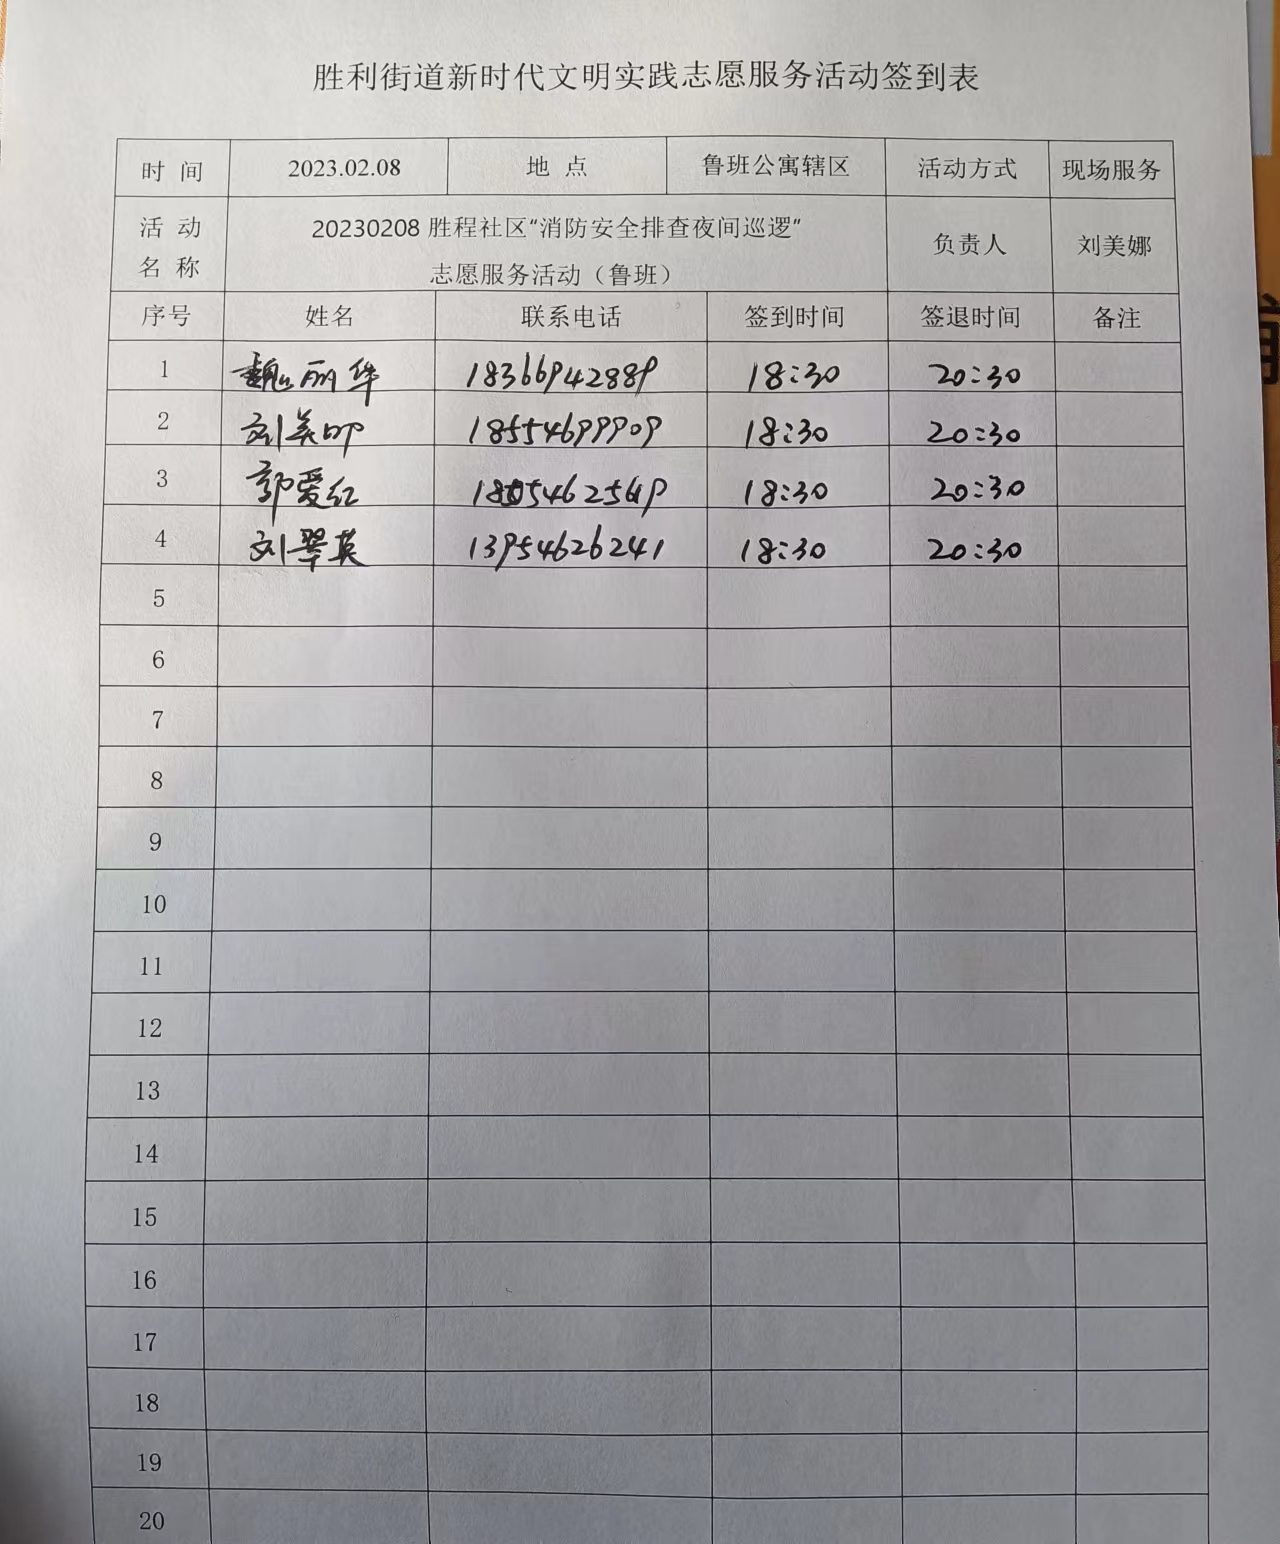 胜利街道新时代文明实践志愿服务活动签到表
时 间 2023.02.08 地 点 鲁班公寓辖区 活动方式 现场服务
活 动 名 称 20230208 胜程社区“消防安全排查夜间巡逻” 负责人 刘美娜
志愿服务活动（鲁班）
序号 姓名 联系电话 签到时间 签退时间 备注
1 魏丽华 18366942889 18:30 20:30
2 刘美 18554699909 18:30 20:30
3 郭爱红 18:30 20:30
4 刘翠英 13954626241 18:30 20:30
5
6
7
8
9
10
11
12
13
14
15
16
17
18
19
20